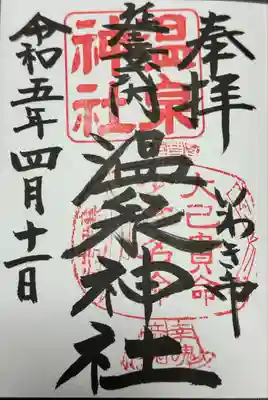 奉拝
いわき市
温泉神社
令和五年四月十一日
温泉
神社
大己貴命